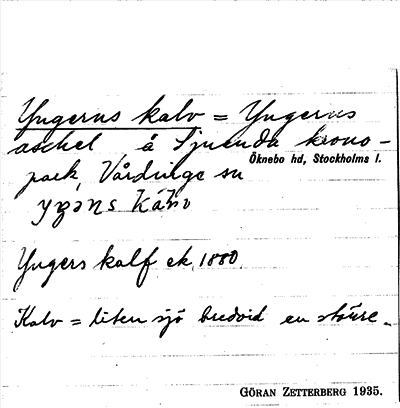 Yngerns kalv = Yngerns
å Tjuenda krono-
Öknebo hd, Stockholms l.
park, Vårdinge sn
Yngers kalf ek. 1880.
Kalv = liten sjö bredvid en större.
GÖRAN ZETTERBERG 1935.